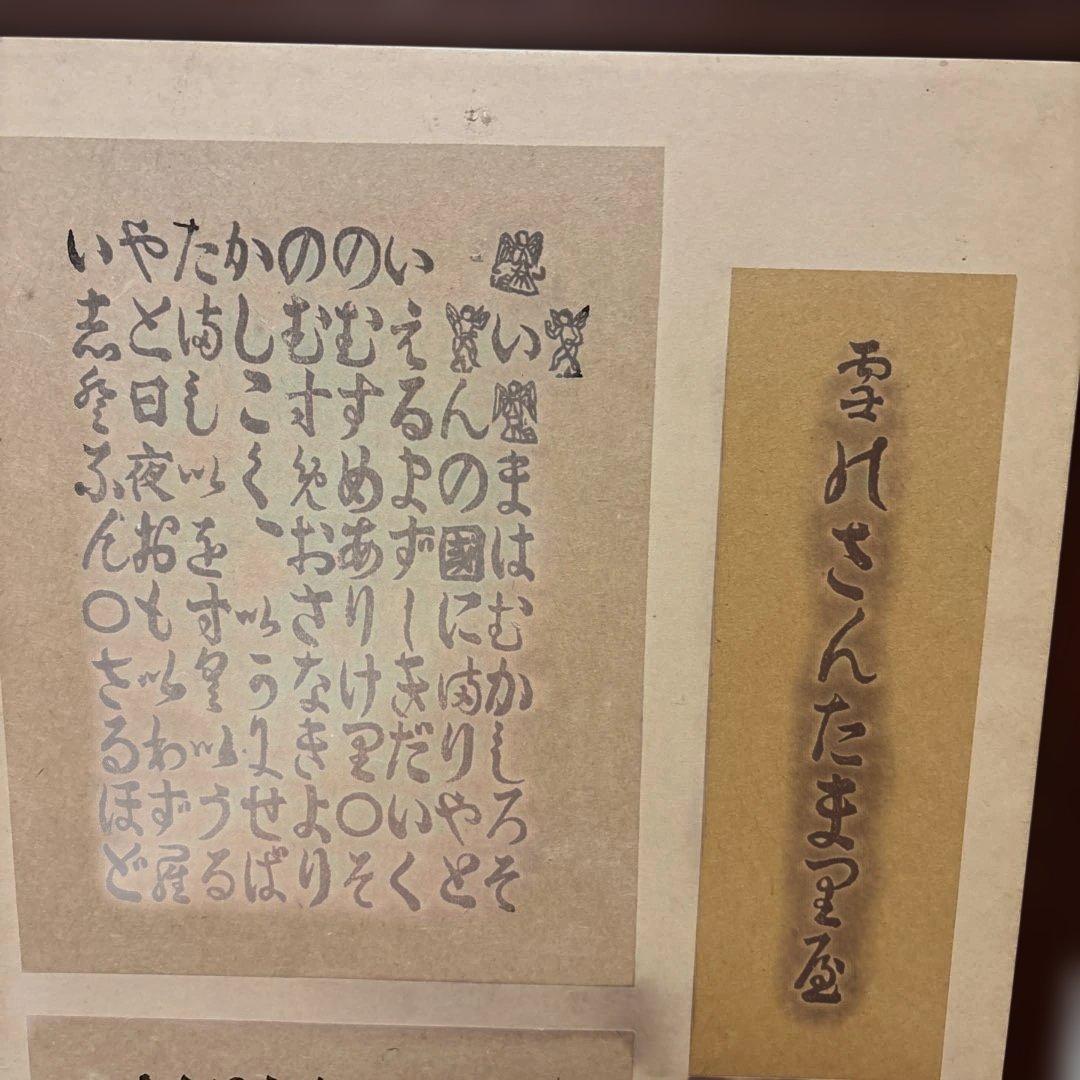 雪のさんたま里屋
いまはむかしろそ
んの國にまりやと
いえるまずしきだいく
のむすめありけ里〇そ
のむすめおさなきより
かしこく、いうにせば
たましいをすくいうる
やと日夜おもいわず羅
い志ん〇さるほど